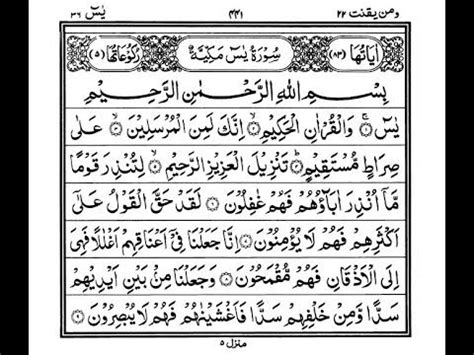 ومن يقنت ٢٢ ٤٤١ يٰسٓ ٣٦
اٰيَاتُهَا (٨٣) سُوْرَةُ يٰسٓ مَكِّيَّةٌ رُكُوْعَاتُهَا (٥)
بِسْمِ اللهِ الرَّحْمٰنِ الرَّحِيْمِ
يٰسٓ ۝١ وَالْقُرْاٰنِ الْحَكِيْمِ ۝٢ اِنَّكَ لَمِنَ الْمُرْسَلِيْنَ ۝٣ عَلٰى
صِرَاطٍ مُّسْتَقِيْمٍ ۝٤ تَنْزِيْلَ الْعَزِيْزِ الرَّحِيْمِ ۝٥ لِتُنْذِرَ قَوْمًا
مَّآ اُنْذِرَ اٰبَآؤُهُمْ فَهُمْ غٰفِلُوْنَ ۝٦ لَقَدْ حَقَّ الْقَوْلُ عَلٰٓى
اَكْثَرِهِمْ فَهُمْ لَا يُؤْمِنُوْنَ ۝٧ اِنَّا جَعَلْنَا فِيْٓ اَعْنَاقِهِمْ اَغْلٰلًا فَهِيَ
اِلَى الْاَذْقَانِ فَهُمْ مُّقْمَحُوْنَ ۝٨ وَجَعَلْنَا مِنْۢ بَيْنِ اَيْدِيْهِمْ
سَدًّا وَّمِنْ خَلْفِهِمْ سَدًّا فَاَغْشَيْنٰهُمْ فَهُمْ لَا يُبْصِرُوْنَ ۝٩
منزل ٥